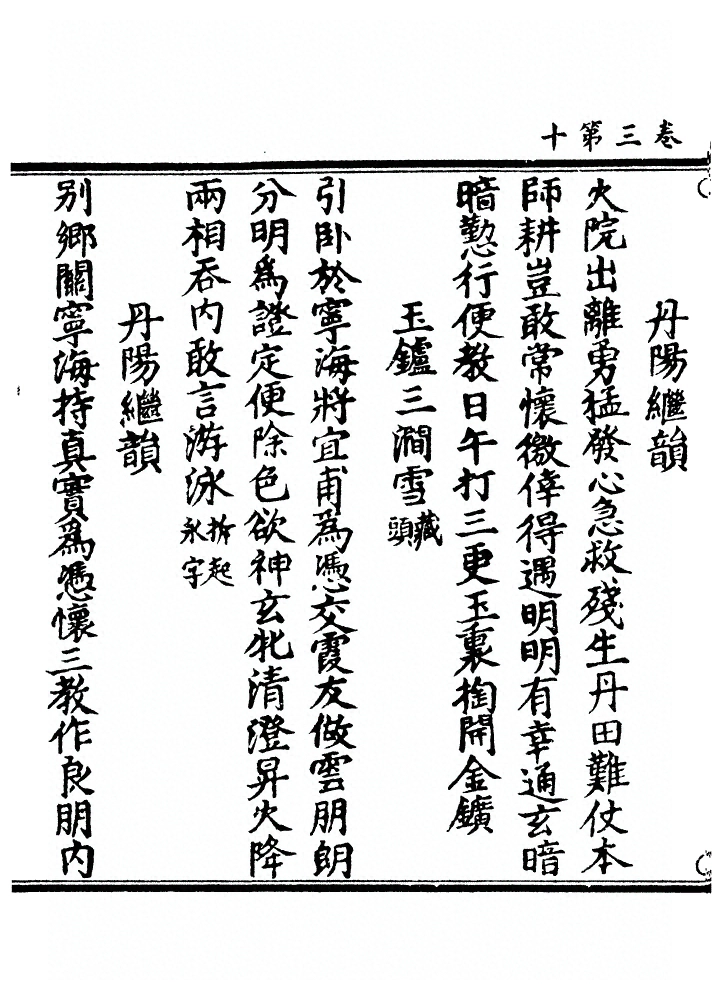 卷三第十
丹陽繼韻
火院出離勇猛發心急救殘生丹田難仗本
師耕豈敢常懷徼倖得遇明明有幸通玄暗
暗懃行便教日午打三更玉裏掏開金鑛
玉鑪三澗雪藏頭
引卧於寧海將宜甫爲憑交霞友做雲朋朗
分明爲證定便除色欲神玄牝清澄昇火降
兩相吞内敢言游泳拆起永字
丹陽繼韻
别鄉關寧海持真實爲憑懷三教作良朋内